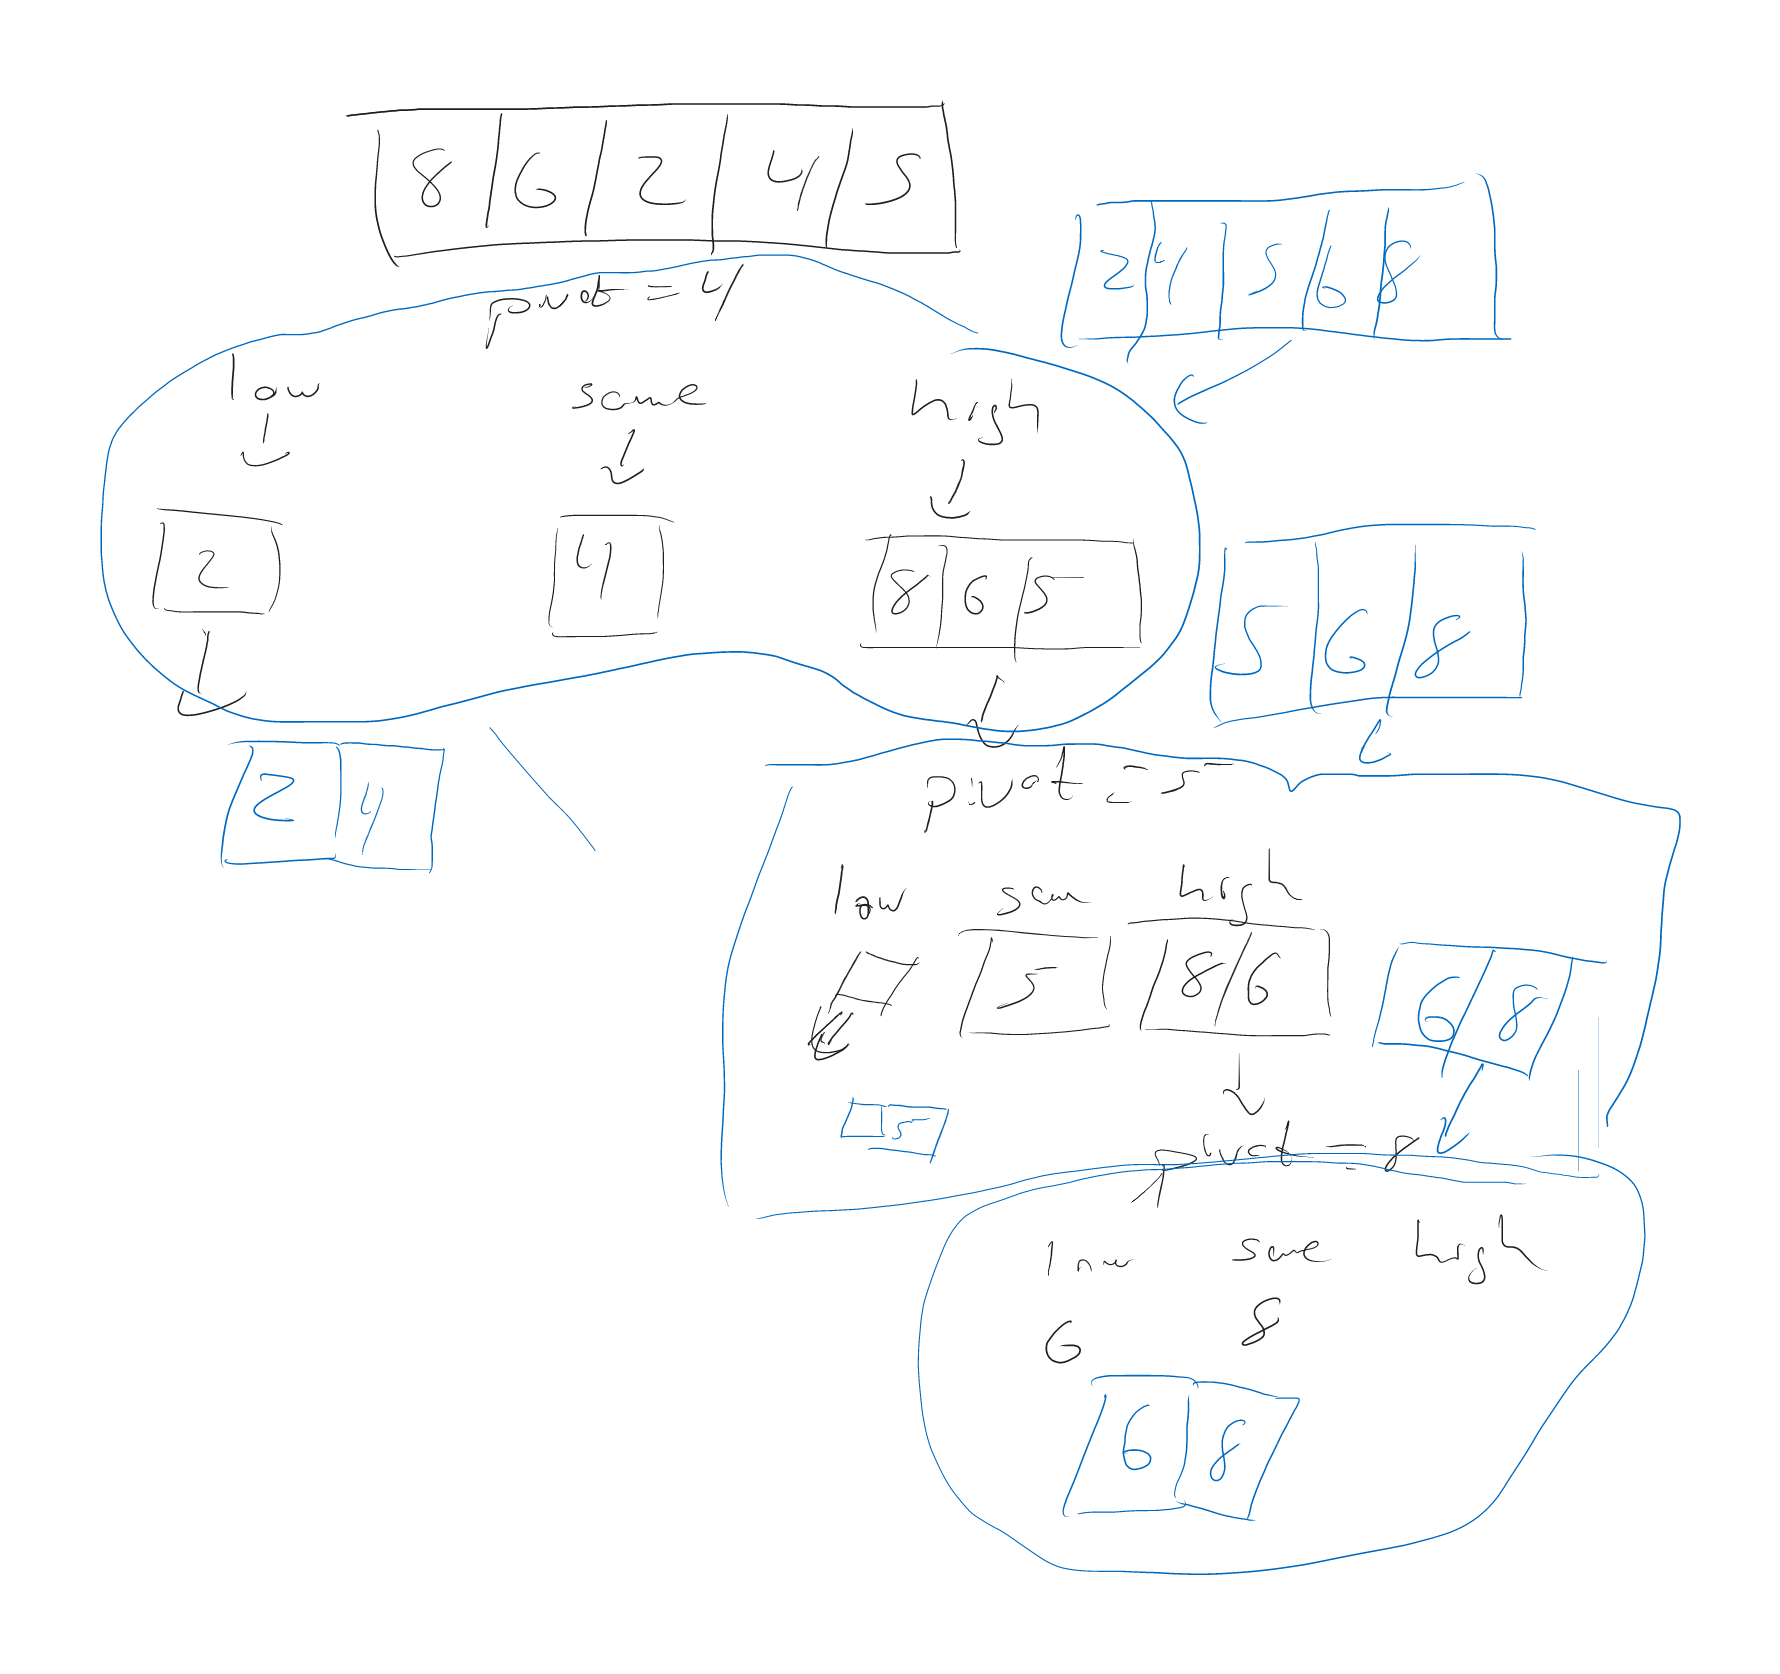 8 6 2 4 5
pivot = 4
2 4 5 6 8
low same high
2 4 8 6 5
5 6 8
2 4
pivot = 5
low sam high
5 8 6
6 8
5
pivot = 8
low same high
6 8
6 8